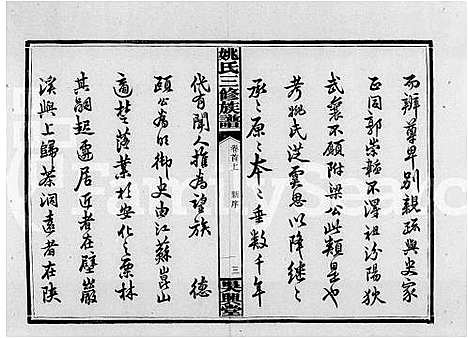 而辨尊卑別親疏與史家
正同郭崇韜不得祖汾陽狄
武襄不願附梁公此類是也
考姚氏從虞思以降繼〻
承〻原〻本〻垂數千年
姚氏三修族譜
卷首上 新序 一 三
吳興堂
代有聞人推為望族 德
頤公為明御史由江蘇崑山
適楚落業於安化之栗林
其嗣起遷居近者在壁巖
溪與上歸茶洞遠者在陝